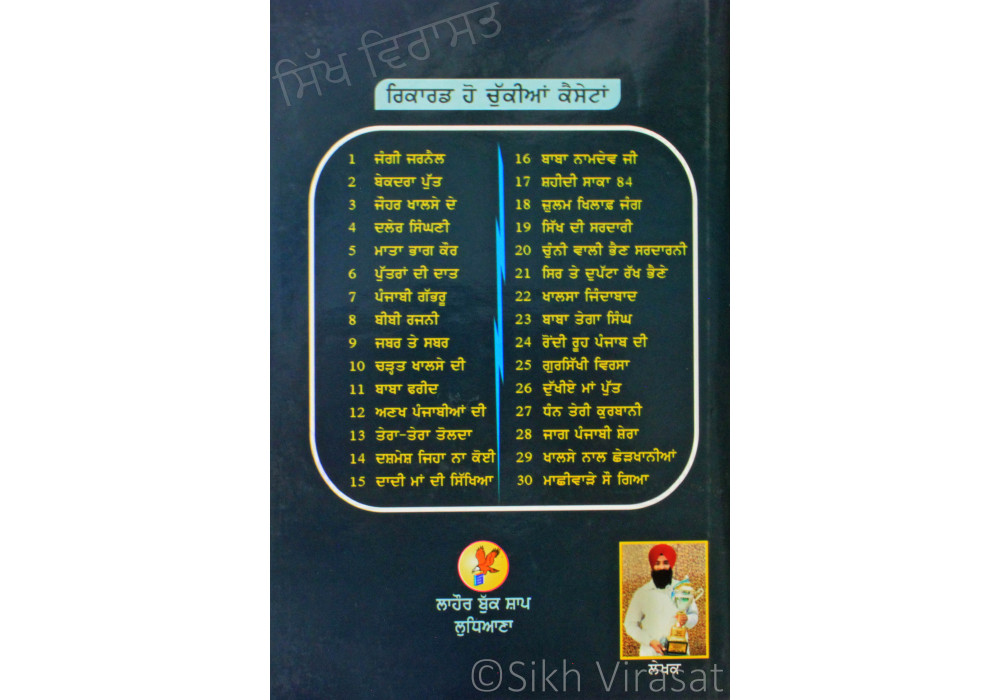 ਸਿੱਖ ਵਿਰਾਸਤ
ਰਿਕਾਰਡ ਹੋ ਚੁੱਕੀਆਂ ਕੈਸੇਟਾਂ
1 ਜੰਗੀ ਜਰਨੈਲ
2 ਬੇਕਦਰਾ ਪੁੱਤ
3 ਜੌਹਰ ਖਾਲਸੇ ਦੇ
4 ਦਲੇਰ ਸਿੰਘਣੀ
5 ਮਾਤਾ ਭਾਗ ਕੌਰ
6 ਪੁੱਤਰਾਂ ਦੀ ਦਾਤ
7 ਪੰਜਾਬੀ ਗੱਭਰੂ
8 ਬੀਬੀ ਰਜਨੀ
9 ਜਬਰ ਤੇ ਸਬਰ
10 ਚੜ੍ਹਤ ਖਾਲਸੇ ਦੀ
11 ਬਾਬਾ ਫਰੀਦ
12 ਅਣਖ ਪੰਜਾਬੀਆਂ ਦੀ
13 ਤੇਰਾ-ਤੇਰਾ ਤੋਲਦਾ
14 ਦਸ਼ਮੇਸ਼ ਜਿਹਾ ਨਾ ਕੋਈ
15 ਦਾਦੀ ਮਾਂ ਦੀ ਸਿੱਖਿਆ
16 ਬਾਬਾ ਨਾਮਦੇਵ ਜੀ
17 ਸ਼ਹੀਦੀ ਸਾਕਾ 84
18 ਜ਼ੁਲਮ ਖਿਲਾਫ਼ ਜੰਗ
19 ਸਿੱਖ ਦੀ ਸਰਦਾਰੀ
20 ਚੁੰਨੀ ਵਾਲੀ ਭੈਣ ਸਰਦਾਰਨੀ
21 ਸਿਰ ਤੇ ਦੁਪੱਟਾ ਰੱਖ ਭੈਣੇ
22 ਖਾਲਸਾ ਜਿੰਦਾਬਾਦ
23 ਬਾਬਾ ਤੇਗਾ ਸਿੰਘ
24 ਰੋਂਦੀ ਰੂਹ ਪੰਜਾਬ ਦੀ
25 ਗੁਰਸਿੱਖੀ ਵਿਰਸਾ
26 ਦੁੱਖੀਏ ਮਾਂ ਪੁੱਤ
27 ਧੰਨ ਤੇਰੀ ਕੁਰਬਾਨੀ
28 ਜਾਗ ਪੰਜਾਬੀ ਸ਼ੇਰਾ
29 ਖਾਲਸੇ ਨਾਲ ਛੇੜਖਾਨੀਆਂ
30 ਮਾਛੀਵਾੜੇ ਸੌਂ ਗਿਆ
ਲਾਹੌਰ ਬੁੱਕ ਸ਼ਾਪ
ਲੁਧਿਆਣਾ
ਲੇਖਕ
©Sikh Virasat